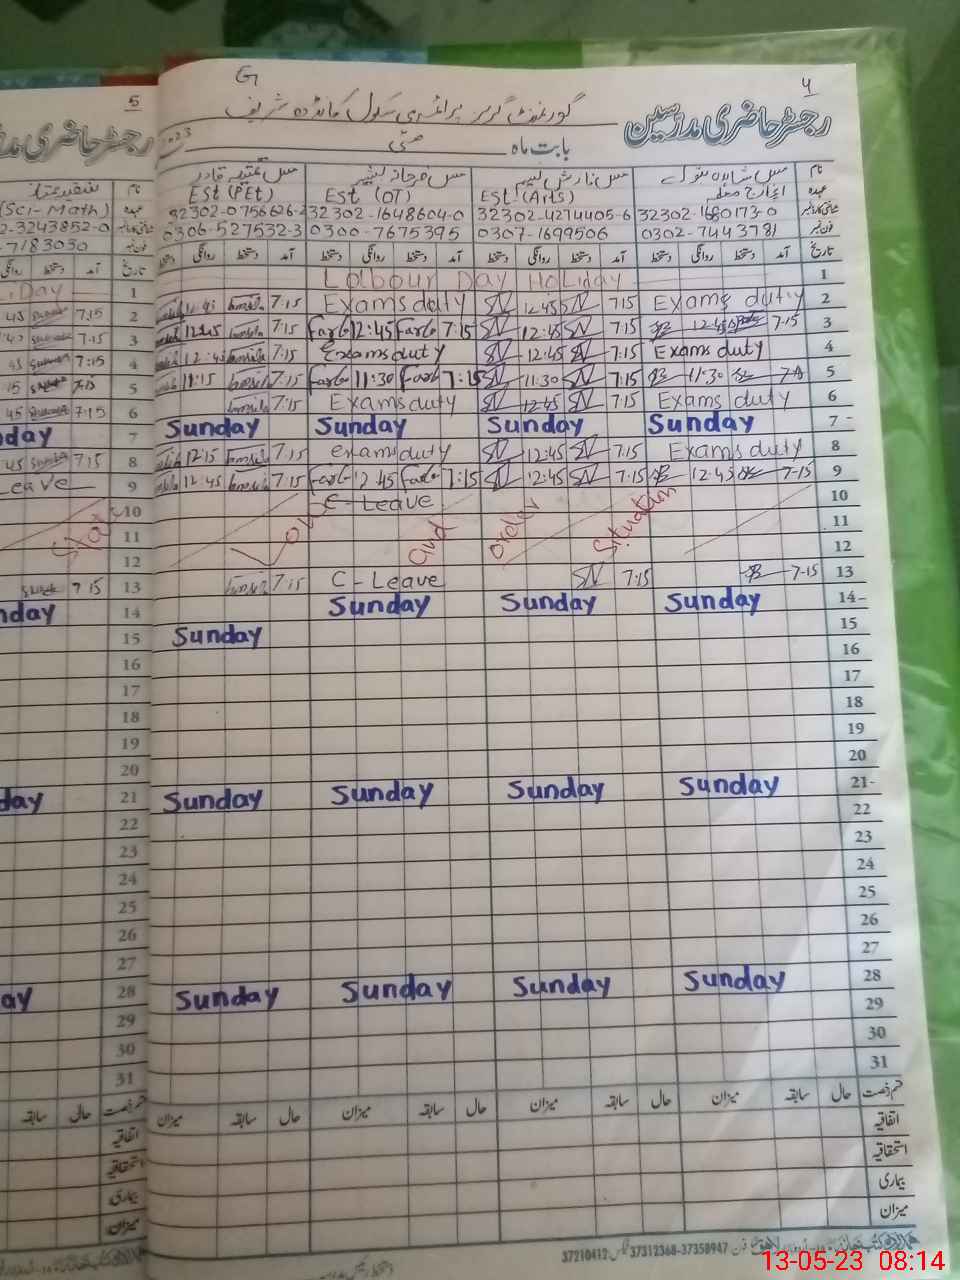 G 4
گورنمنٹ گرلز پرائمری سکول مانڈہ شریف رجسٹر حاضری مدرسین
بابت ماہ مئی 2023
مس شاہدہ بتول نام
انچارج معلمہ عہدہ
Est (PEt) Est (OT) Est (Arts)
32302-0756626-2 32302-1648604-0 32302-4274405-6 32302-1680173-0
0306-527532-3 0300-7675395 0307-1699506 0302-7443781
دستخط روانگی دستخط آمد دستخط روانگی دستخط آمد دستخط روانگی دستخط آمد دستخط روانگی دستخط آمد تاریخ
Labour Day Holiday 1
12:45 7:15 Exams duty SN 12:45 SN 7:15 Exams duty 2
12:45 7:15 Farb 12:45 Farb 7:15 SN 12:45 SN 7:15 12:45 7-15 3
12:45 7:15 Exams duty SN 12:45 SN 7:15 Exams duty 4
11:15 7:15 Farb 11:30 Farb 7:15 SN 11:30 SN 7:15 11:30 5
7:15 Exams duty SN 12:45 SN 7:15 Exams duty 6
Sunday Sunday Sunday Sunday 7
12:15 7:15 exams duty SN 12:45 SN 7:15 Exams duty 8
12:45 7:15 Farb 12:45 Farb 7:15 SN 12:45 SN 7:15 12:45 7-15 9
C-Leave 10
Law and order situation 11
12
7:15 C-Leave SN 7:15 7-15 13
Sunday Sunday Sunday 14
Sunday 15
16
17
18
19
20
Sunday Sunday Sunday Sunday 21
22
23
24
25
26
27
Sunday Sunday Sunday Sunday 28
29
30
31
میزان سابقہ حال میزان سابقہ حال میزان سابقہ حال میزان سابقہ حال قسم رخصت
اتفاقیہ
استحقاقیہ
بیماری
میزان
فون 37312368-37358947 فیکس 37210412
5
رجسٹر حاضری مد
نام
(Sci-Math) عہدہ
2-3243852-0
7183030
روانگی دستخط آمد تاریخ
Day 1
45 7:15 2
7:15 3
45 7:15 4
15 7:15 5
45 7:15 6
day 7
45 7:15 8
Leave 9
10
11
12
7 15 13
nday 14
15
16
17
18
19
20
day 21
22
23
24
25
26
27
ay 28
29
30
31
سابقہ حال قسم رخصت
اتفاقیہ
استحقاقیہ
بیماری
میزان
13-05-23 08:14